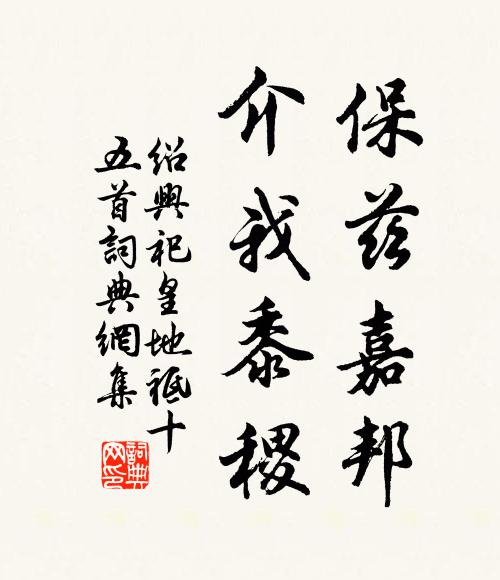 保茲嘉邦
介我黍稷
紹興祀皇地祇十
五首詞典網集
詞典
网印